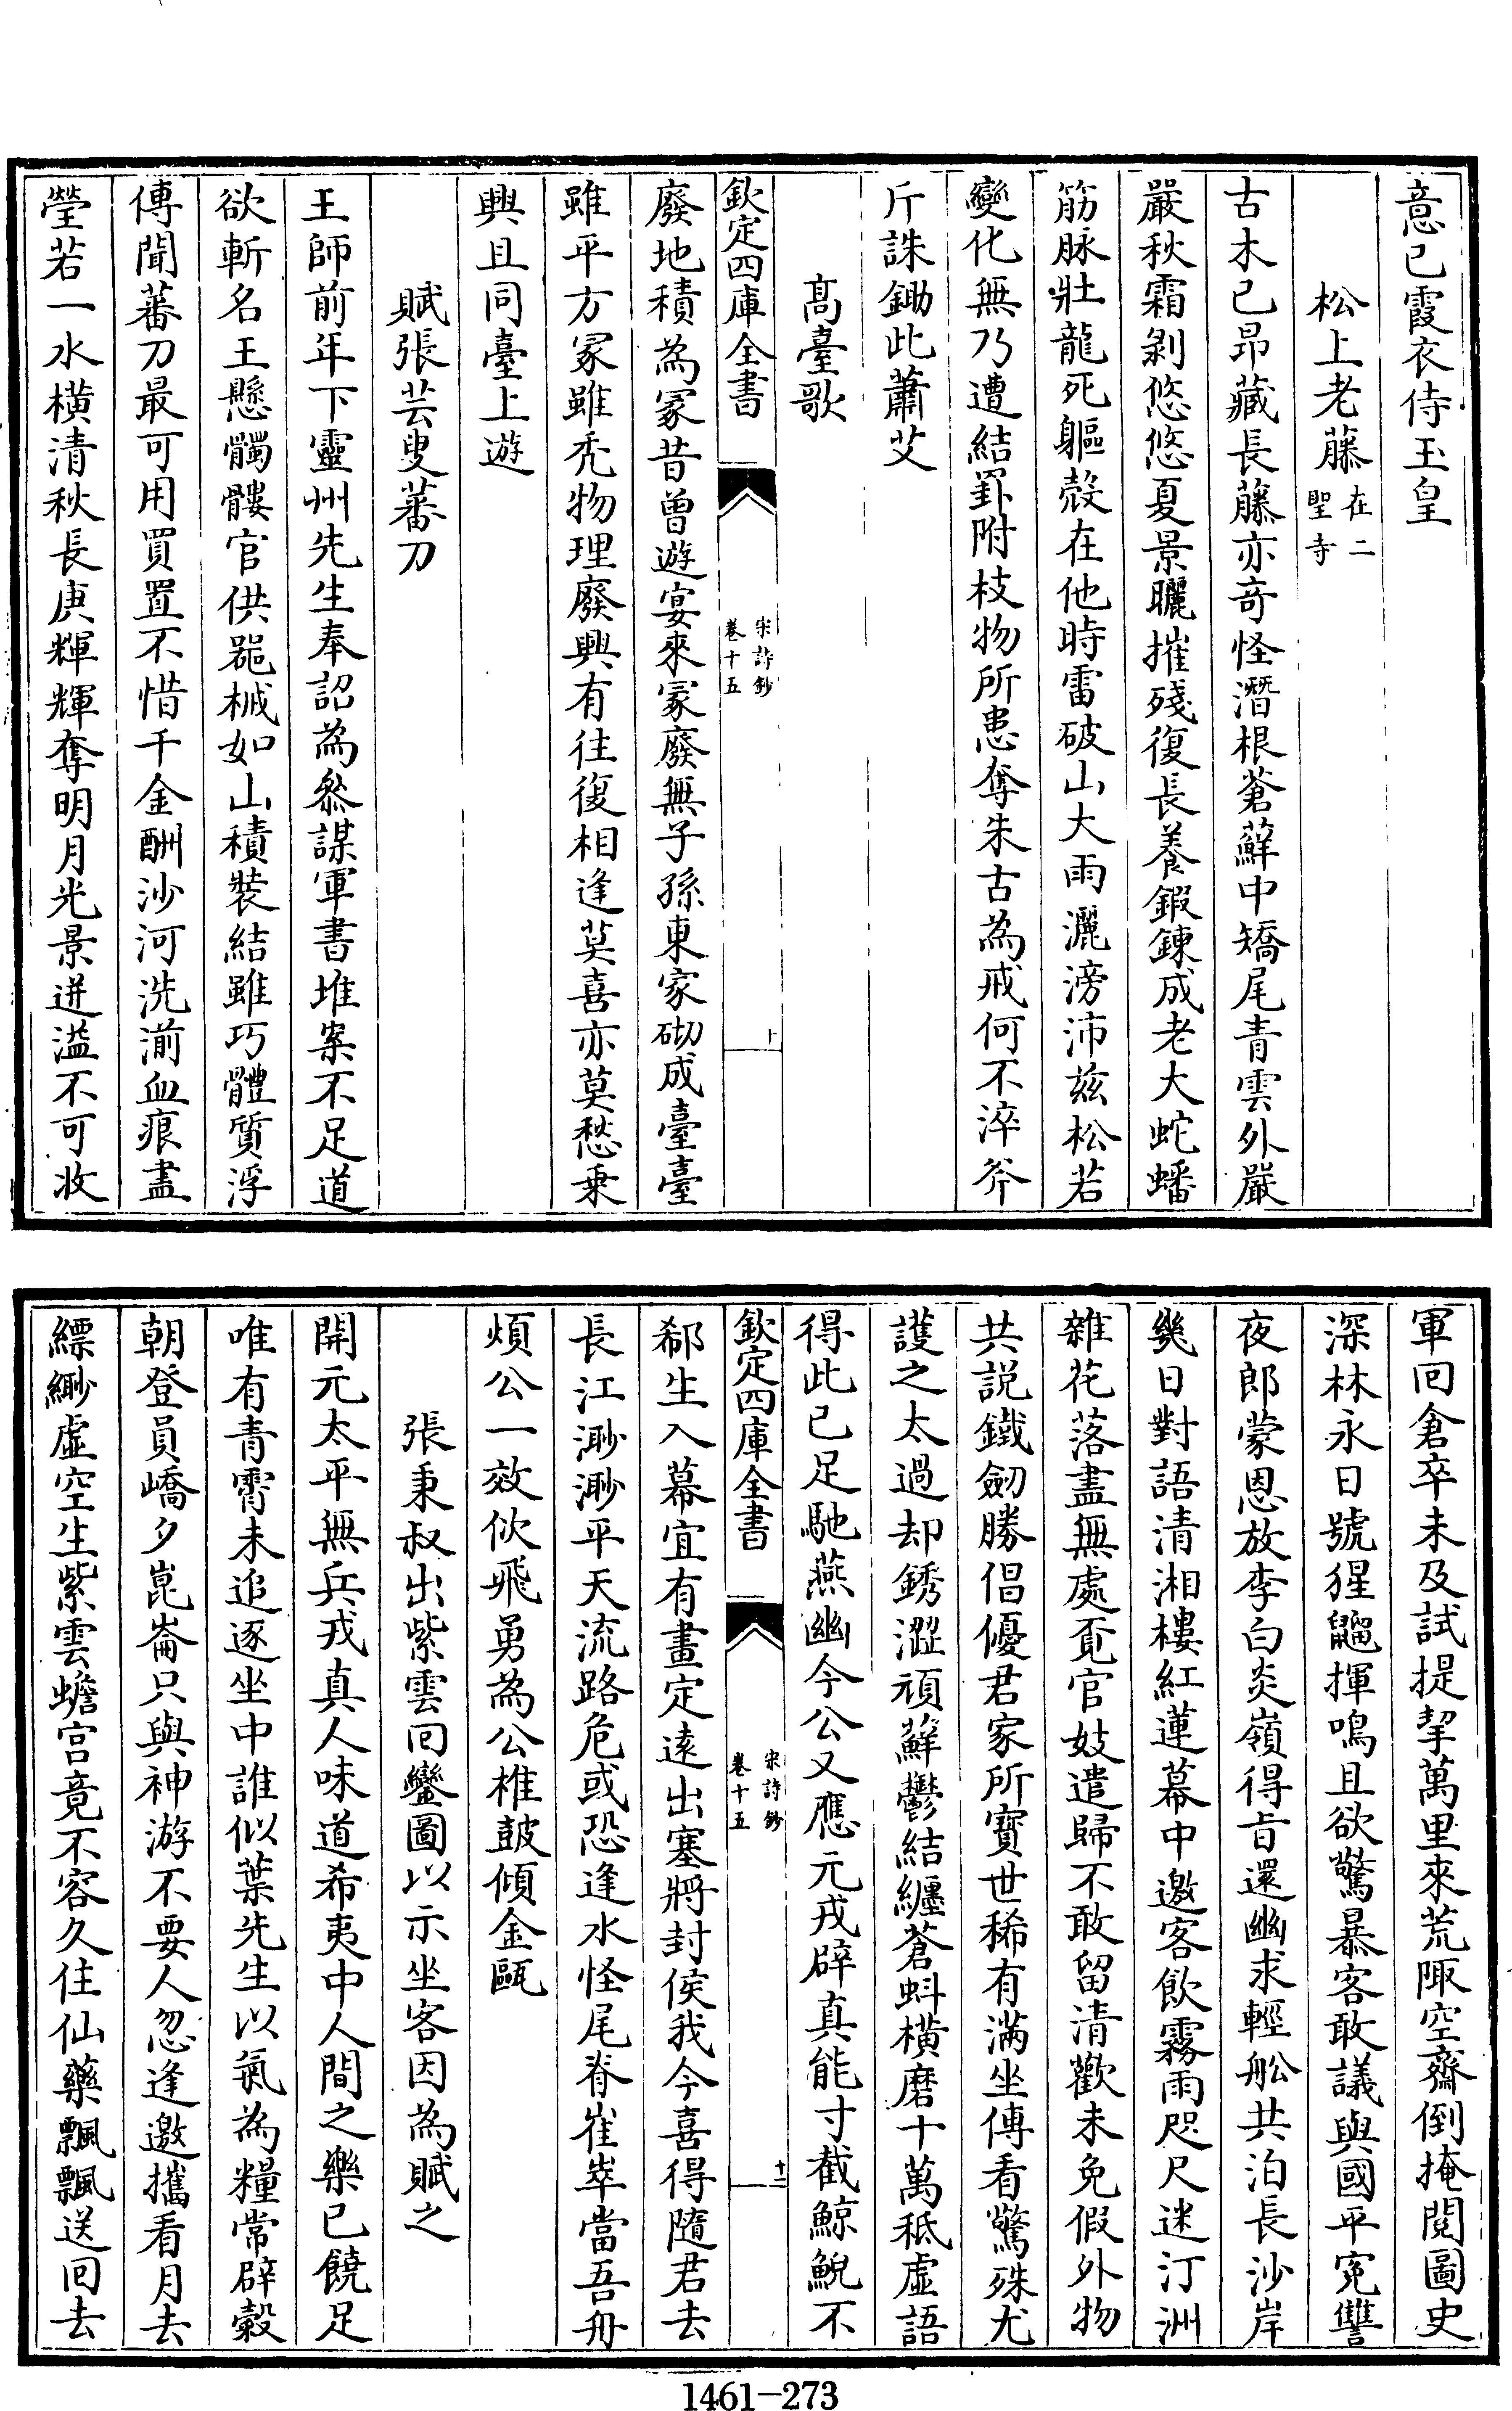 意已霞衣侍玉皇
松上老藤在二聖寺
古木已昻藏長藤亦竒怪潛根蒼蘚中矯尾青雲外嚴
嚴秋霜剝悠悠夏景曬摧殘復長養鍜鍊成老大蛇蟠
筋脉壯龍死軀殻在他時雷破山大雨灑滂沛兹松若
變化無乃遭結罣附枝物所患奪朱古為戒何不淬斧
斤誅鋤此蕭艾
髙臺歌
欽定四庫全書
宋詩鈔
卷十五
十
廢地積為冡昔曽遊宴來冡廢無子孫東家砌成臺臺
雖平方冡雖秃物理廢興有往復相逢莫喜亦莫愁乗
興且同臺上遊
賦張芸叟蕃刀
王師前年下靈州先生奉詔為叅謀軍書堆案不足道
欲斬名王懸髑髏官供噐械如山積裝結雖巧體質浮
傳聞蕃刀最可用買置不惜千金酬沙河洗湔血痕盡
瑩若一水横清秋長庚輝輝奪明月光景迸溢不可收
軍回倉卒未及試提挈萬里來荒陬空齋倒掩閱圖史
深林永日號猩鼯揮鳴且欲驚暴客敢議與國平寃讐
夜郎蒙恩放李白炎嶺得旨還幽求輕舩共泊長沙岸
幾日對語清湘樓紅蓮幕中邀客飲霧雨咫尺迷汀洲
雜花落盡無處覔官妓遣歸不敢留清歡未免假外物
共説鐵劒勝倡優君家所寳世稀有滿坐傳看驚殊尤
護之太過却銹澀頑蘚鬱結纒蒼蚪横磨十萬秪虚語
得此已足馳燕幽今公又應元戎辟真能寸截鯨鯢不
欽定四庫全書
宋詩鈔
卷十五
十一
郗生入幕宜有畫定逺出塞將封侯我今喜得隨君去
長江渺渺平天流路危或恐逢水怪尾脊崔崒當吾舟
煩公一效佽飛勇為公椎鼓傾金甌
張秉叔出紫雲回鑾圖以示坐客因為賦之
開元太平無兵戎真人味道希夷中人間之樂已饒足
唯有青霄未追逐坐中誰似葉先生以氣為糧常辟穀
朝登員嶠夕崑崙只與神游不要人忽逢邀攜看月去
縹緲虛空生紫雲蟾宫竟不容久住仙藥飄飄送回去
1461-273